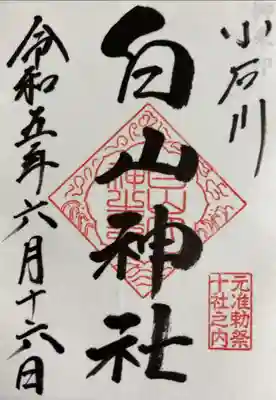 小石川
白山神社
元准勅祭
十社之内
令和五年六月十六日